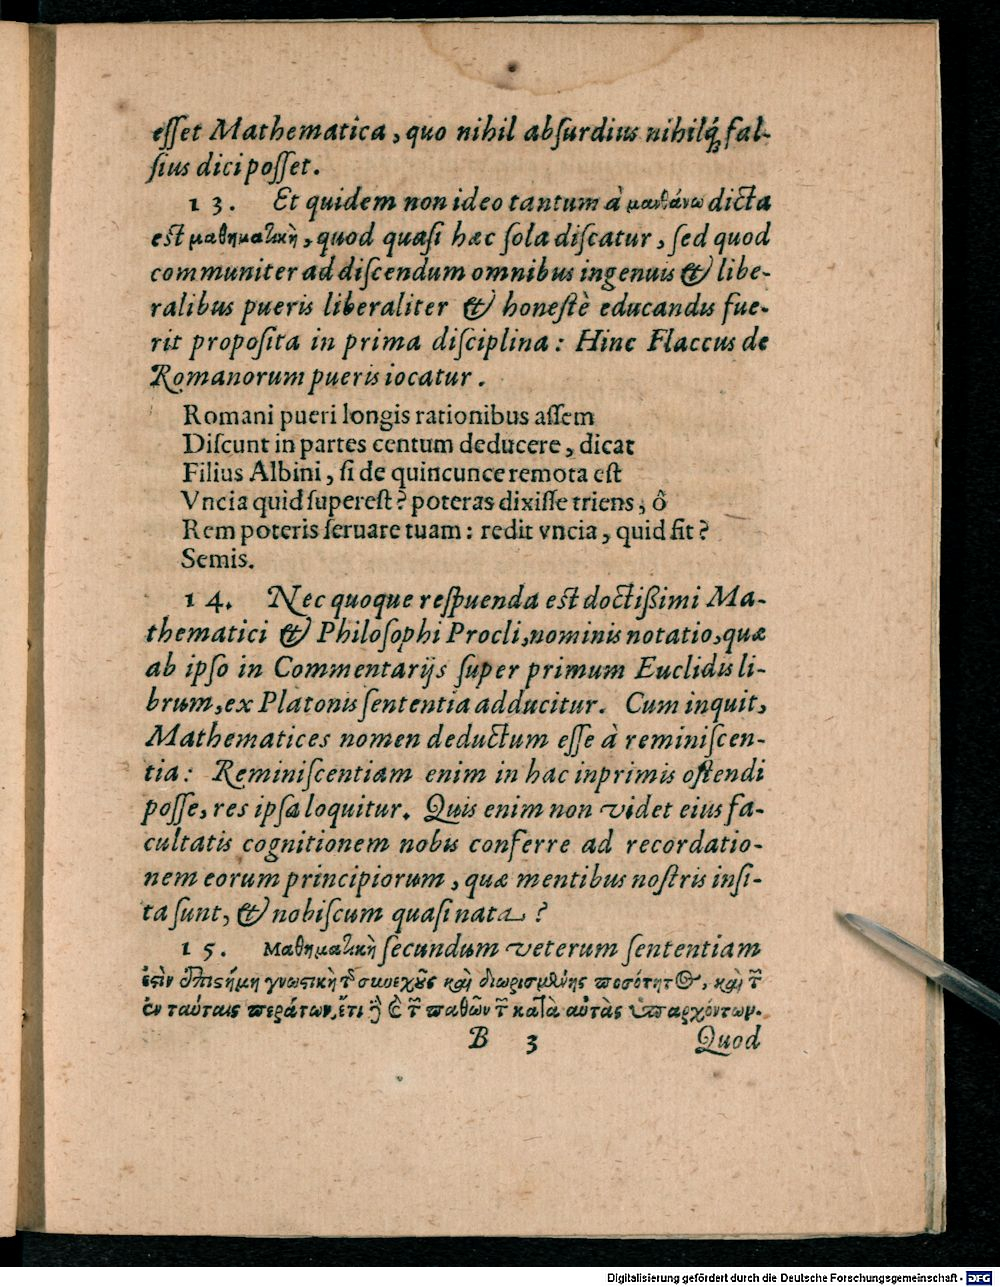 eſſet Mathematica, quo nihil abſurdius nihilq́ꝫ fal-
ſius dici poſſet.
13. Et quidem non ideo tantum à μανθάνω dicta
est μαθηματικὴ, quod quaſi hæc ſola diſcatur, ſed quod
communiter ad diſcendum omnibus ingenuis & libe-
ralibus pueris liberaliter & honeſtè educandis fue-
rit propoſita in prima diſciplina: Hinc Flaccus de
Romanorum pueris iocatur.
Romani pueri longis rationibus aſſem
Diſcunt in partes centum deducere, dicat
Filius Albini, ſi de quincunce remota eſt
Vncia quid ſupereſt? poteras dixiſſe triens, ô
Rem poteris ſeruare tuam: redit vncia, quid fit?
Semis.
14. Nec quoque reſpuenda est doctißimi Ma-
thematici & Philoſophi Procli, nominis notatio, quæ
ab ipſo in Commentarijs ſuper primum Euclidis li-
brum, ex Platonis ſententia adducitur. Cum inquit,
Mathematices nomen deductum eſſe à reminiſcen-
tia: Reminiſcentiam enim in hac inprimis oſtendi
poſſe, res ipſa loquitur. Quis enim non videt eius fa-
cultatis cognitionem nobis conferre ad recordatio-
nem eorum principiorum, quæ mentibus noſtris inſi-
ta ſunt, & nobiſcum quaſi nata?
15. Μαθηματικὴ ſecundum veterum ſententiam
ἐςὶν ἐπιςήμη γνωςικὴ τ͂ συνεχοῦς καὶ διωρισμένης ποσότητος, καὶ τ͂
ἐν ταύταις περάτων, ἔτι ἢ ἐ τ͂ παθῶν τ͂ κατὰ αὐτὰς ὑπαρχόντων.
B 3 Quod
Digitalisierung gefördert durch die Deutsche Forschungsgemeinschaft - DFG